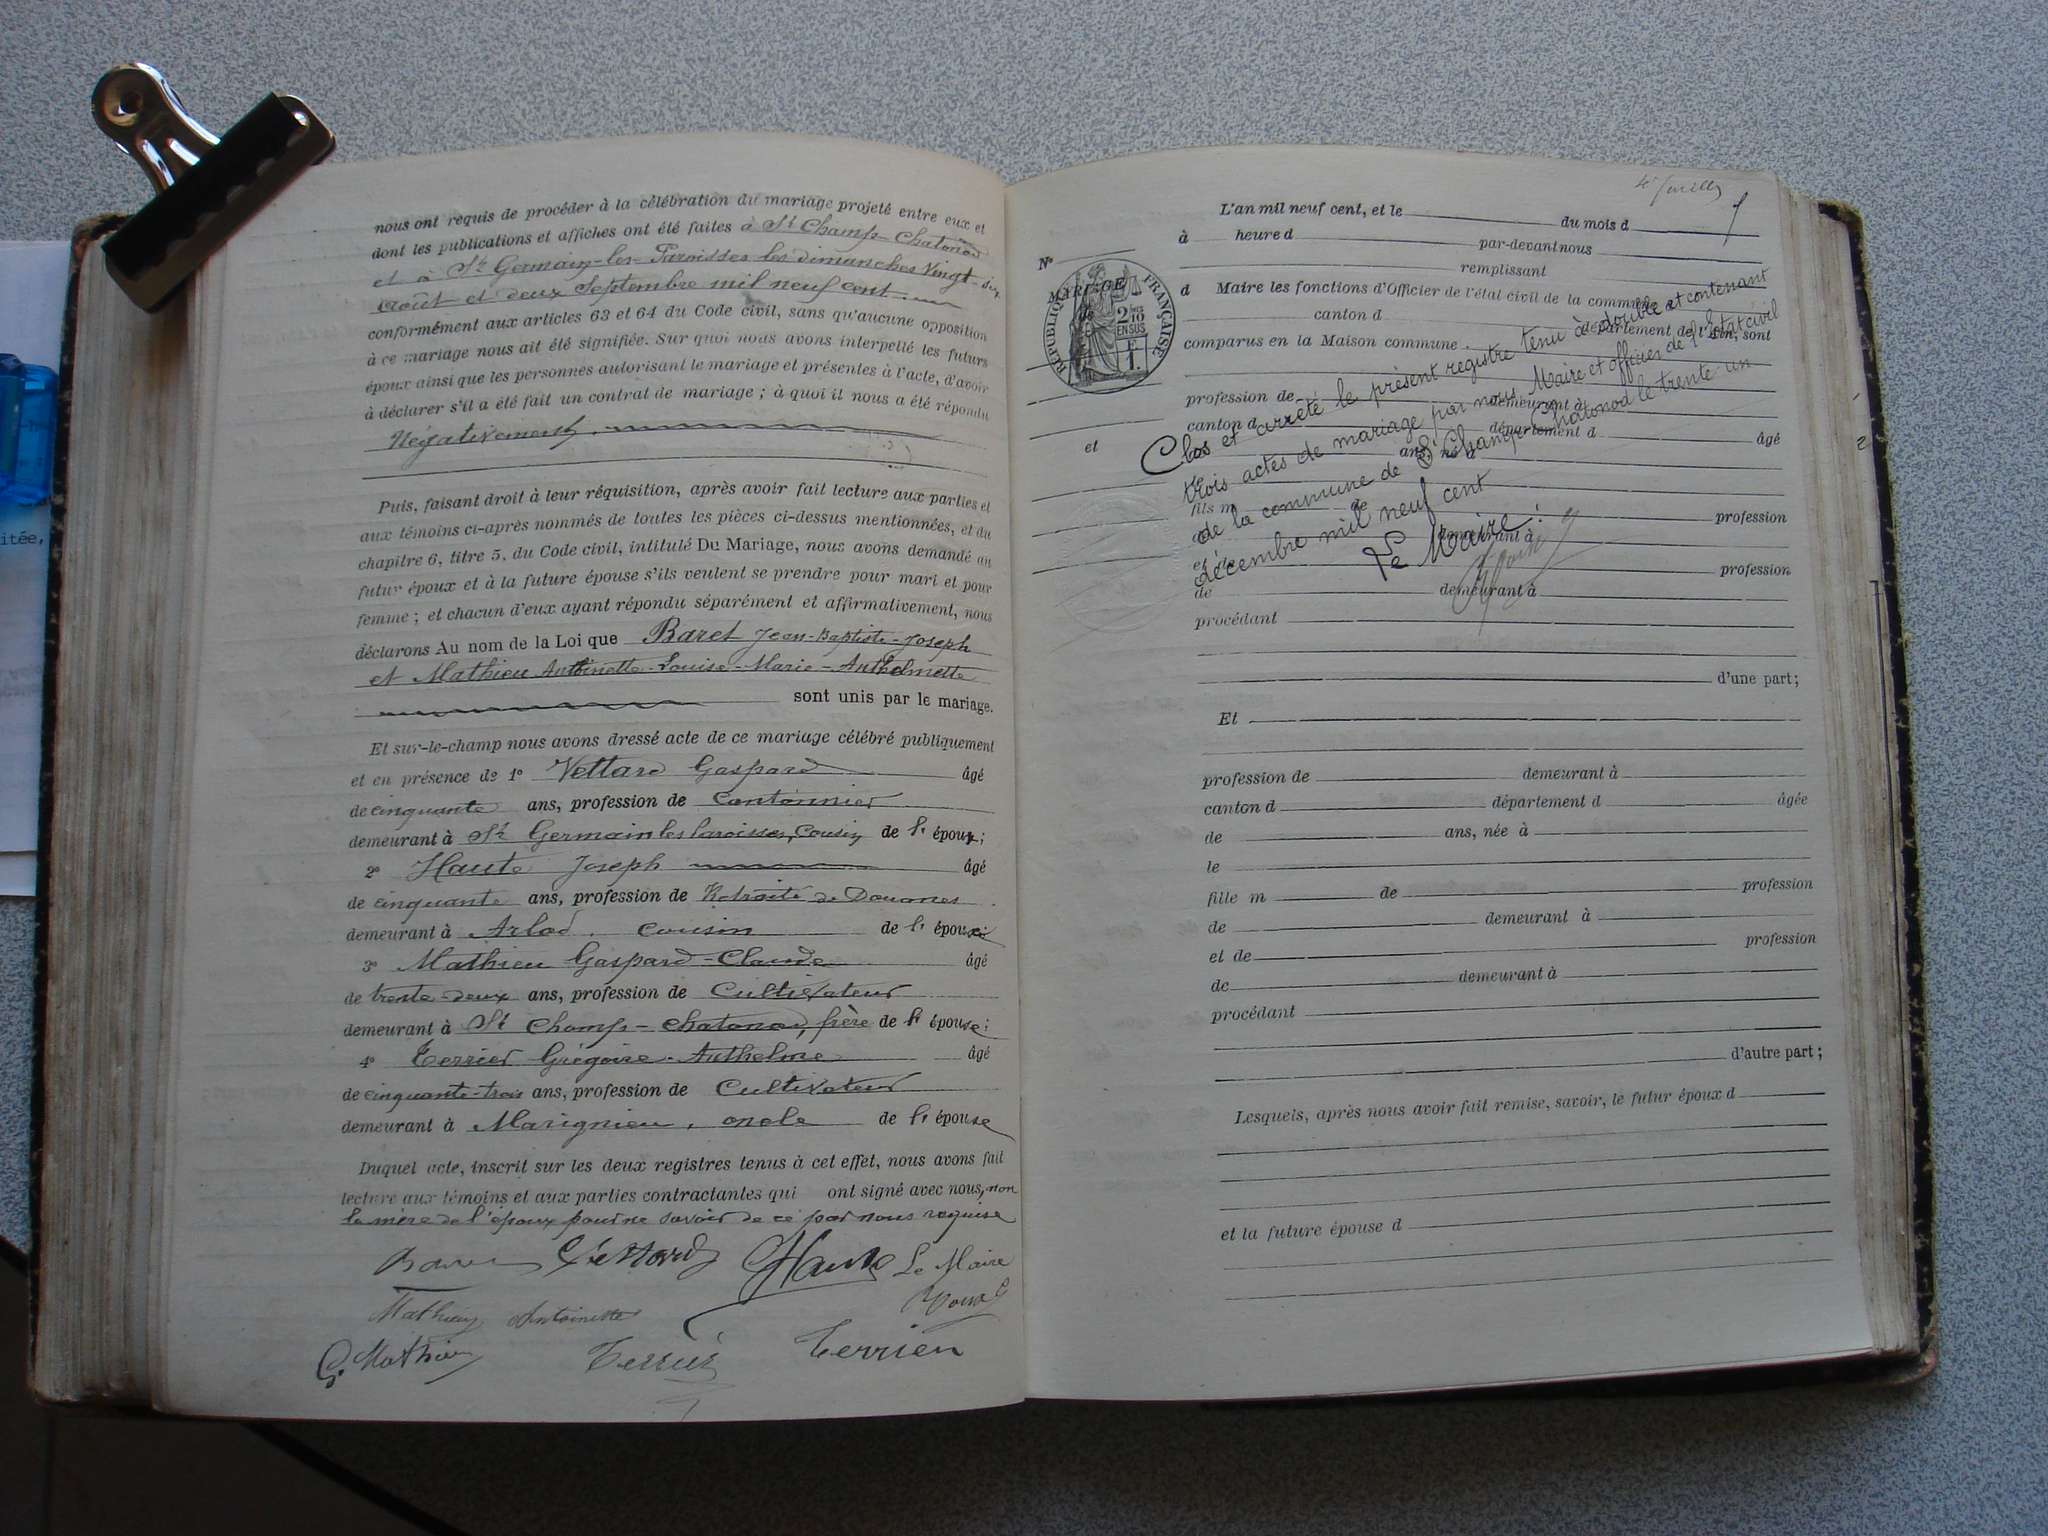 nous ont requis de procéder à la célébration du mariage projeté entre eux et
dont les publications et affiches ont été faites à St Champ Chatonod
et à St Germain-les-Paroisses les dimanches Vingt-six
Août et deux Septembre mil neuf cent.
conformément aux articles 63 et 64 du Code civil, sans qu'aucune opposition
à ce mariage nous ait été signifiée. Sur quoi nous avons interpellé les futurs
époux ainsi que les personnes autorisant le mariage et présentes à l'acte, d'avoir
à déclarer s'il a été fait un contrat de mariage ; à quoi il nous a été répondu
Négativement.
Puis, faisant droit à leur réquisition, après avoir fait lecture aux parties et
aux témoins ci-après nommés de toutes les pièces ci-dessus mentionnées, et du
chapitre 6, titre 5, du Code civil, intitulé Du Mariage, nous avons demandé au
futur époux et à la future épouse s'ils veulent se prendre pour mari et pour
femme ; et chacun d'eux ayant répondu séparément et affirmativement, nous
déclarons Au nom de la Loi que Baret Jean-Baptiste-Joseph
et Mathieu Anthinette-Louise-Marie-Anthelmette
sont unis par le mariage.
Et sur-le-champ nous avons dressé acte de ce mariage célébré publiquement
et en présence de 1° Vettard Gaspard âgé
de cinquante ans, profession de Cantonnier
demeurant à St Germain les Paroisses, Cousin de l' époux;
2° Haute Joseph âgé
de cinquante ans, profession de Retraité de Douanes
demeurant à Arlod. cousin de l' époux
3° Mathieu Gaspard-Claude âgé
de trente-deux ans, profession de Cultivateur
demeurant à St Champ-Chatonod, frère de l' épouse;
4° Terrier Grégoire-Anthelme âgé
de cinquante-trois ans, profession de Cultivateur
demeurant à Marignieu, oncle de l' épouse
Duquel acte, inscrit sur les deux registres tenus à cet effet, nous avons fait
lecture aux témoins et aux parties contractantes qui ont signé avec nous, non
la mère de l'époux pour ne savoir de ce par nous requise
Baret Vettard Haute Le Maire
Mathieu Antoinette
G. Mathieu Terrier Terrien
L'an mil neuf cent, et le du mois d
à heure d par-devant nous
N° remplissant
d Maire les fonctions d'Officier de l'état civil de la commune d
MARIAGE
de
RÉPUBLIQUE FRANÇAISE
2/10 EN SUS
1 F.
canton d département de l'Ain, sont
comparus en la Maison commune.
profession de demeurant à
canton d département d âgé
et
de ans, né à
le
fils m de profession
de demeurant à
et de profession
de demeurant à
procédant
Clos et arrêté le présent registre tenu à double et contenant
trois actes de mariage par nous Maire et officier de l'état civil
de la commune de St Champ-Chatonod le trente-un
décembre mil neuf cent
Le Maire :
d'une part;
Et
profession de demeurant à
canton d département d âgée
de ans, née à
le
fille m de profession
de demeurant à
et de profession
de demeurant à
procédant
d'autre part;
Lesquels, après nous avoir fait remise, savoir, le futur époux d
et la future épouse d
itée,